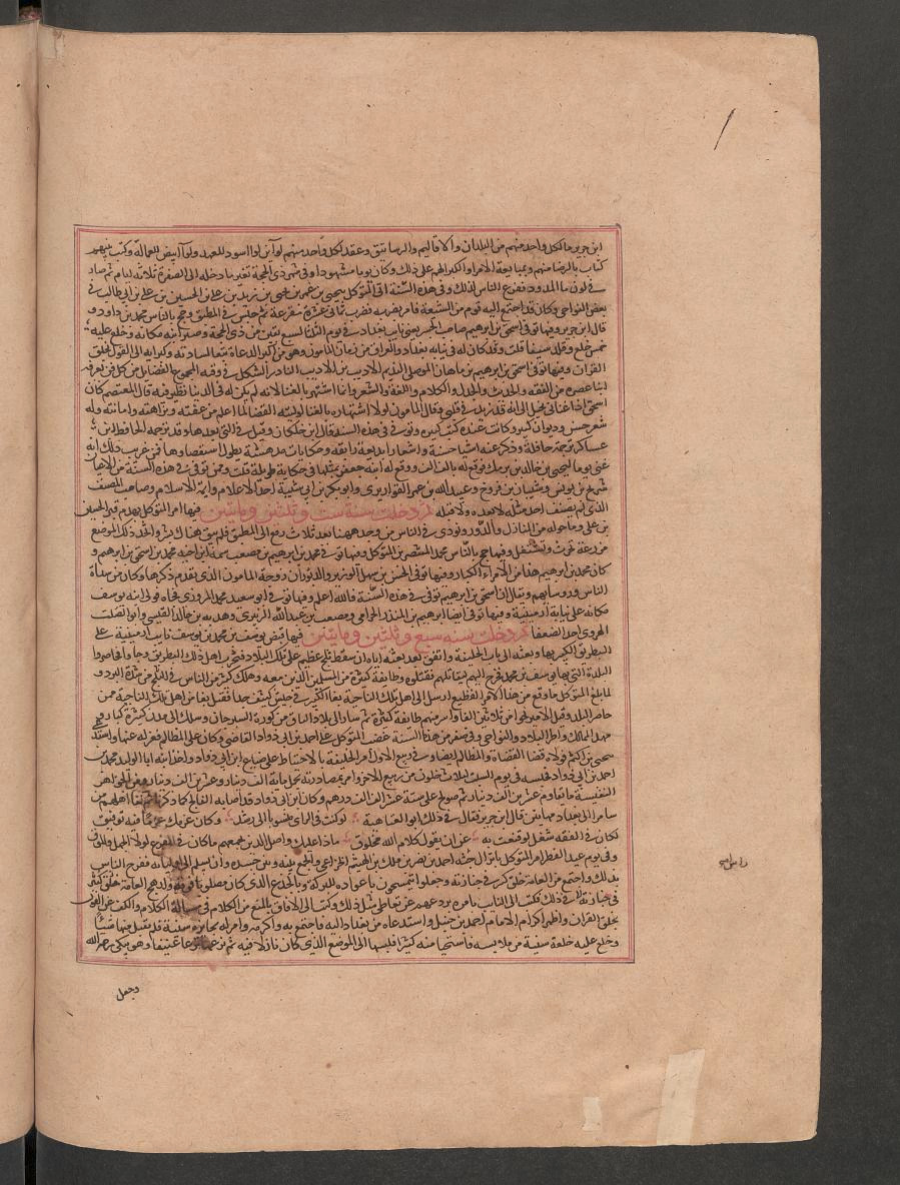 ابن جرير ما لكل واحد منهم من البلدان والاقاليم والرساتيق وعقد لكل واحد منهم لوآين لوا اسود للعهد ولوآ ابيض للعمالة وكتب بينهم
كتاب بالرضا منهم ومبايعة الامرا وكان يوما مشهودا وفي شهر ذي الحجة تغير ما دجلة الى الصفرة ثلاثة ايام ثم صار
في لون ما المدود ففزع الناس لذلك وفي هذه السنة اتى المتوكل بيحيى بن عمر بن يحيى بن زيد بن علي بن الحسين بن علي بن ابي طالب
بعض النواحي وكان قد اجتمع اليه قوم من الشيعة فامر بضربه فضرب ثماني عشرة مقرعة ثم حبس في المطبق وحج بالناس محمد بن داود
قال ابن جرير وفيها توفي اسحق بن ابرهيم صاحب الجسر يعني نايب بغداد في يوم الثلثا لسبع بقين من ذي الحجة وصير ابنه مكانه وخلع عليه
خمس خلع وقلد سيفا قلت وقد كان له في نيابة بغداد والعراق من زمان المامون وهو من الدعاة تبعا لسادته وكبرايه الى القول بخلق
القران وفيها توفي اسحق بن ابرهيم بن ماهان الموصلي النديم الاديب بن الاديب النادر الشكل في وقته المجموع الفضايل من كل فن يعرفه
ابنا عصره من الفقه والحديث والجدل والكلام واللغة والشعر وانما اشتهر بالغنا لانه لم يكن له في الدنيا نظير فيه قال المعتصم كان
اسحق اذا غنى يخيل الي انه قد زيد في ملكي وقال المامون لولا اشتهاره بالغنا لوليته القضا لما اعلم من عفته ونزاهته وامانته وله
شعر حسن وديوان كبير وكانت عنده كتب كثيرة وتوفي في هذه السنة قال ابن خلكان وقيل في التي بعدها وقد ترجمه الحافظ ابن
عساكر ترجمة حافلة وذكر عنه اشيا حسنة واشعارا بديعة رايقة وحكايات مدهشة يطول استقصاوها فمن غريب ذلك انه
غنى يوما ليحيى بن خالد بن برمك فوقع له بالف الف ووقع له ابنه جعفر بمثلها في حكاية طويلة قلت وممن توفي في هذه السنة من الاعيان
شريح بن يونس وشيبان بن فروخ وعبيد الله بن عمر القواريري وابو بكر بن ابي شيبة احد الاعلام وايمة الاسلام وصاحب المصنف
الذي لم يصنف احد مثله لا بعده ولا قبله ثم دخلت سنة ست وثلثين ومايتين فيها امر المتوكل بهدم قبر الحسين
بن علي وما حوله من المنازل والدور ونودي في الناس من وجد ههنا بعد ثلاث رفع الى المطبق فلم يبق هناك بشر واتخذ ذلك الموضع
مزرعة تحرث وتستغل وفيها حج بالناس محمد المنتصر بن المتوكل وفيها توفي محمد بن ابرهيم بن مصعب سمه ابن اخيه محمد بن اسحق بن ابرهيم و
كان محمد بن ابرهيم هذا من الامراء الكبار وفيها توفي الحسن بن سهل الوزير والد بوران زوجة المامون الذي تقدم ذكرها وكان من سراة
الناس وروسايهم ويقال ان اسحق بن ابرهيم توفي في هذه السنة فالله اعلم وفيها توفي ابو سعيد محمد المروزي فجاه فولى ابنه يوسف
مكانه على نيابة ارمينية وفيها توفي ايضا ابرهيم بن المنذر الحزامي ومصعب بن عبد الله الزبيري وهدبه بن خالد القيسي وابو الصلت
الهروي احد الضعفا ثم دخلت سنه سبع وثلثين ومايتين فيها قبض يوسف بن محمد بن يوسف نايب ارمينية على
البطريق الكبير بها وبعثه الى باب الخليفة واتفق بعد بعثه اياه ان سقط ثلج عظيم على تلك البلاد فتحزب اهل ذلك البطريق وجاوا فحاصروا
البلدة التي بها يوسف بن محمد فخرج اليهم ليقاتلهم فقتلوه وطايفة كثيرة من المسلمين الذين معه وهلك كثير من الناس في الثلج من شدة البرد و
لما بلغ المتوكل ما وقع من هذا الامر الفظيع ارسل الى اهل تلك الناحية بغا الكبير في جيش كثيف جدا فقتل بغا من اهل تلك الناحية ممن
حاصر البلد وقتل الامير نحوا من ثلاثين الفا واسر منهم طايفة كثيرة ثم سار الى بلاد الباق من كورة السيرجان وسلك الى مدن كثيرة كبار
مهد الممالك واطد البلاد والنواحي وفي صفر من هذا السنة غضب المتوكل على احمد بن ابي دواد القاضي وكان على المظالم فعزله عنها واستدعى
بيحيى بن اكثم فولاه قضا القضاة والمظالم ايضا وفي ربيع الاول امر الخليفة بالاحتياط على ضياع ابن ابي دواد واخذ ابنه ابا الوليد محمد بن
احمد بن ابي دواد فحبسه في يوم السبت لثلاث خلون من ربيع الاخر وامر بمصادرته فحمل ماية الف دينار وعشرين الف دينار ومن الجواهر
النفيسة ما يقاوم عشرين الف دينار ثم صولح على ستة عشر الف الف درهم وكان ابن ابي دواد قد اصابه الفالج كما ذكرنا ثم نفا اهله من
سامرا الى بغداد مهانين قال ابن جرير فقال في ذلك ابو العتاهية لو كنت في الراي منسوبا الى رشد وكان عزمك عزما فيه توفيق
لكان في الفقه شغل لو قنعت به عن ان تقول كلام الله مخلوق ماذا عليك واصل الدين يجمعهم ماكان في الفرع لولا الجهل والموق
وفي يوم عيد الفطر امر المتوكل بانزال جثة احمد بن نصر بن ملك بن الهيثم الخزاعي والجمع بينه وبين جسده وان يسلم الى اوليايه ففرح الناس
بذلك واجتمع من العامة خلق كثير في جنازته وجعلوا يتمسحون باعواده للبركة وبالجذع الذي كان مصلوبا ولهج العامة خلق كثير
في ذلك فكتب الى الناس يامره بردعهم عن تعاطي مثل ذلك وكتب الى الافاق بالمنع من الكلام في مسالة الكلام والكف عن القول
بخلق القران واظهر اكرام الامام احمد بن حنبل واستدعاه من بغداد اليه فاجتمع به واكرمه وامر له بجايزة سنية فلم يقبل منها شيئا
وخلع عليه خلعة سنية من ملابسه فاستحيا منه كثيرا فلبسها الى الموضع الذي كان نازلا فيه ثم نزعها نزعا عنيفا وهو يبكي رحمه الله
وجعل